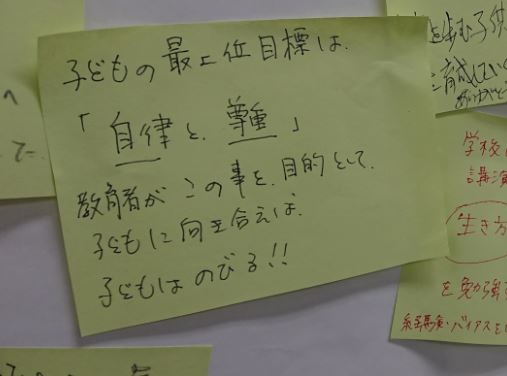 子どもの最上位目標は、
「自律と、尊重」
教育者がこの事を、目的として、
子どもに向き合えば、
子どもはのびる!!
を歩む子供
育成してい
学校
講演
生き方
を勉強
経験・バイアスを